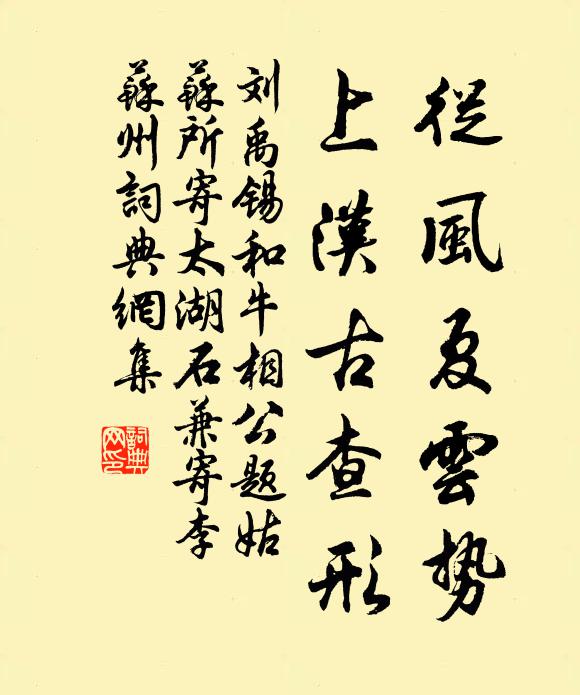 從風夏雲勢
上漢古查形
刘禹锡和牛相公题姑
蘇所寄太湖石兼寄李
蘇州詞典網集
詞典
网印